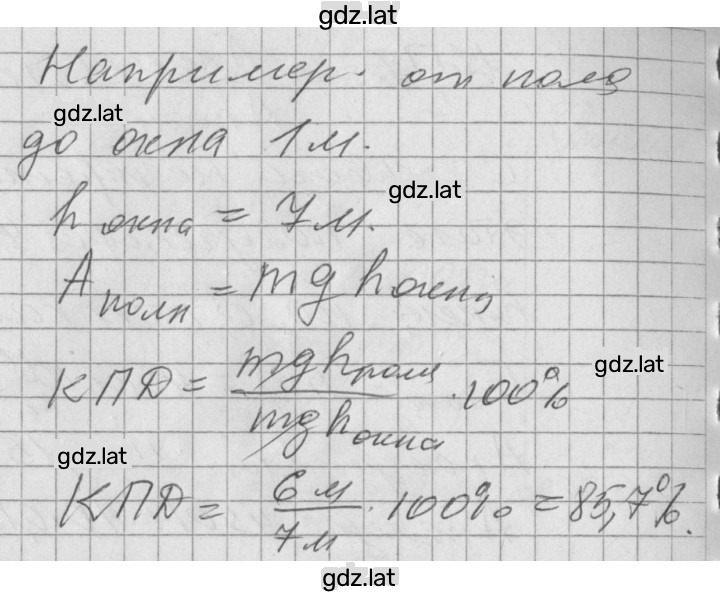 gdz.lat
Например. от пола
gdz.lat
до окна 1 м.
gdz.lat
h окна = 7 м.
A полн = mg h окна
gdz.lat
КПД = mg h пола / mg h окна · 100%
gdz.lat
КПД = 6 м / 7 м · 100% = 85,7%.
gdz.lat